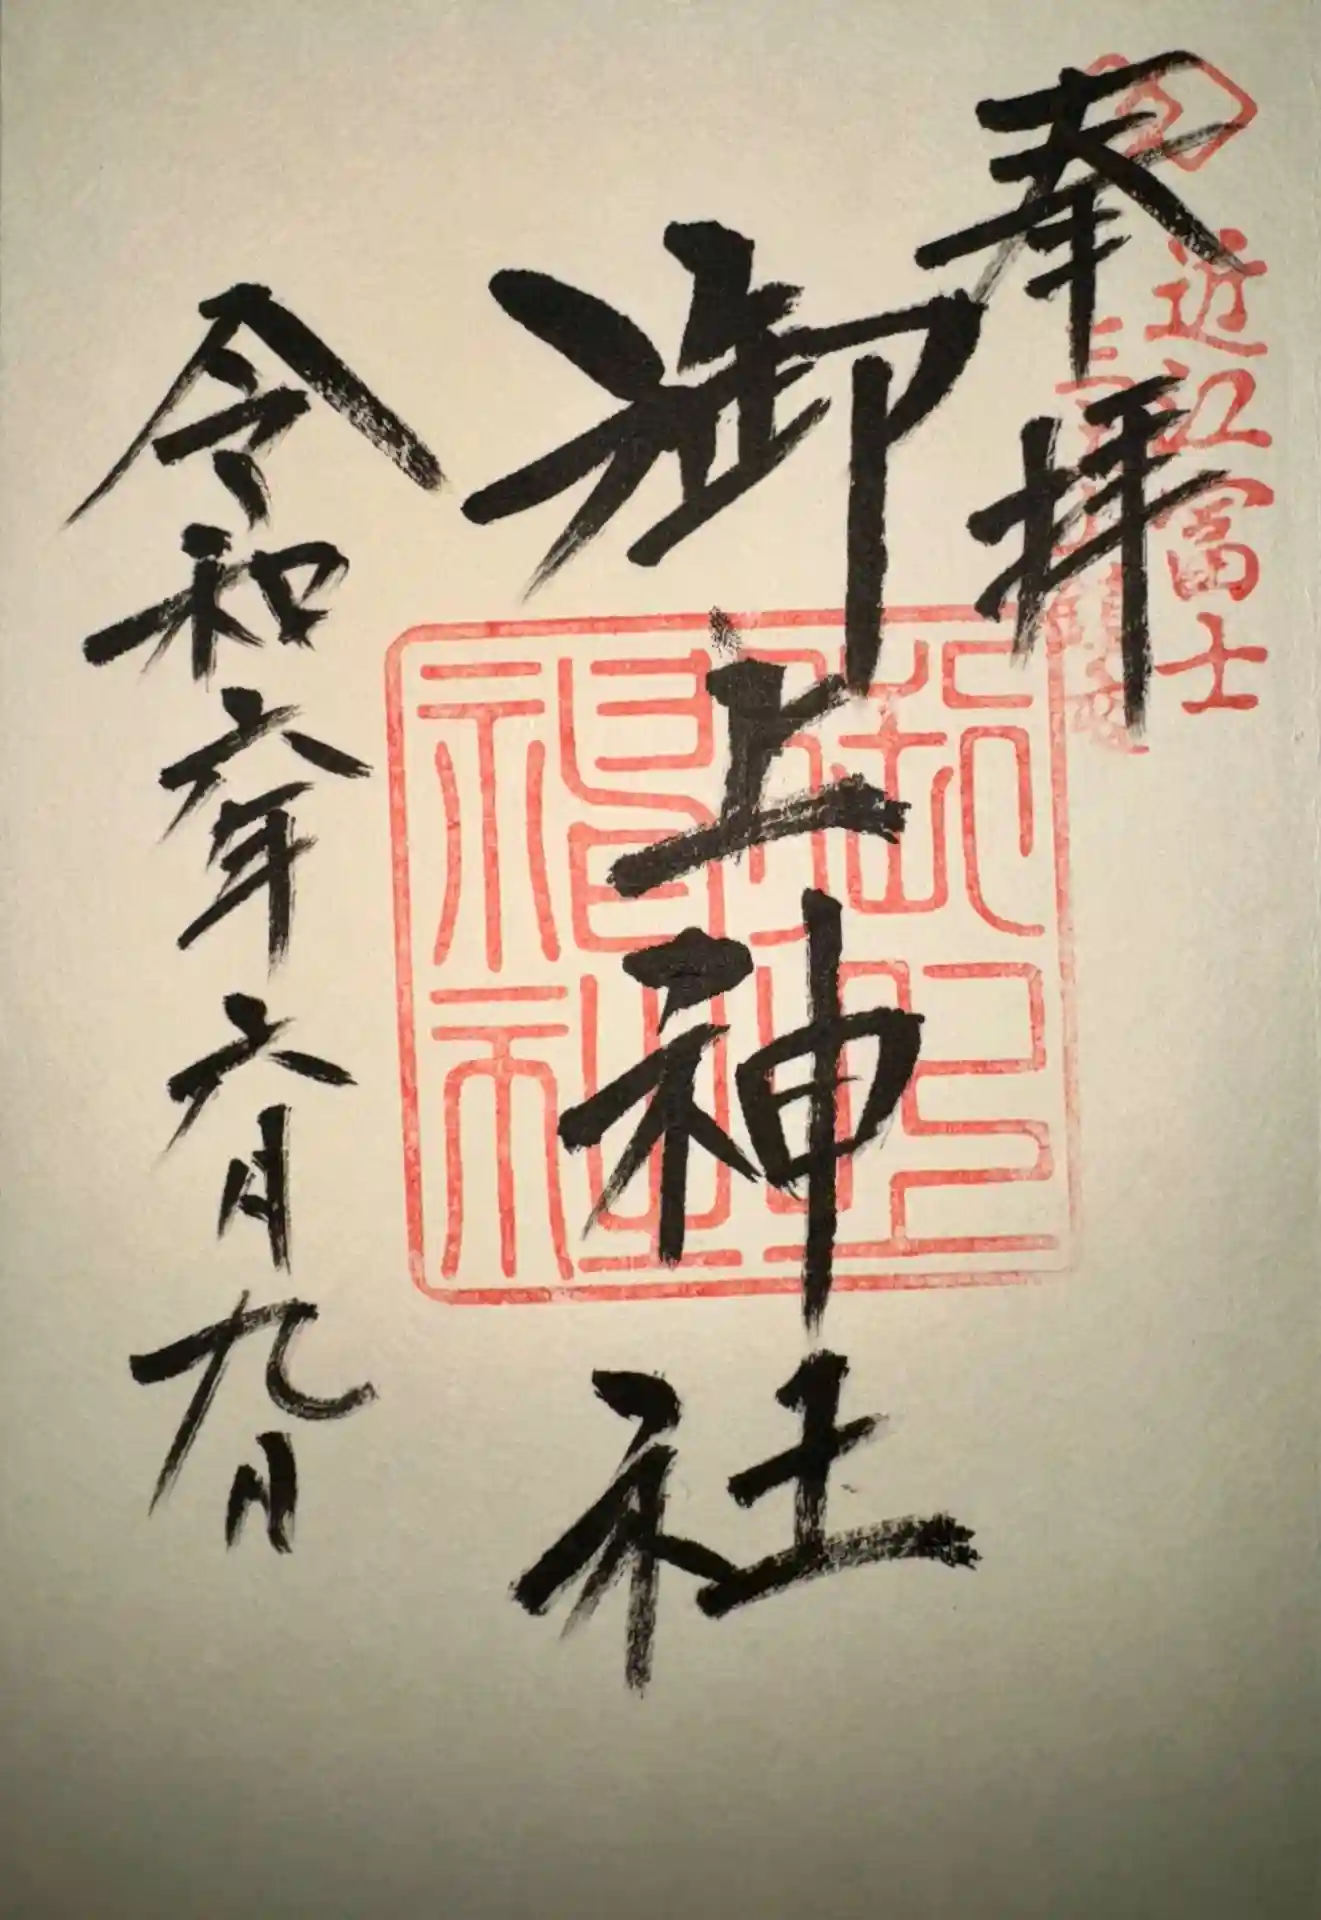 近江富士
三上山鎮座
奉拝
御上神社
御上神社
令和六年六月九日